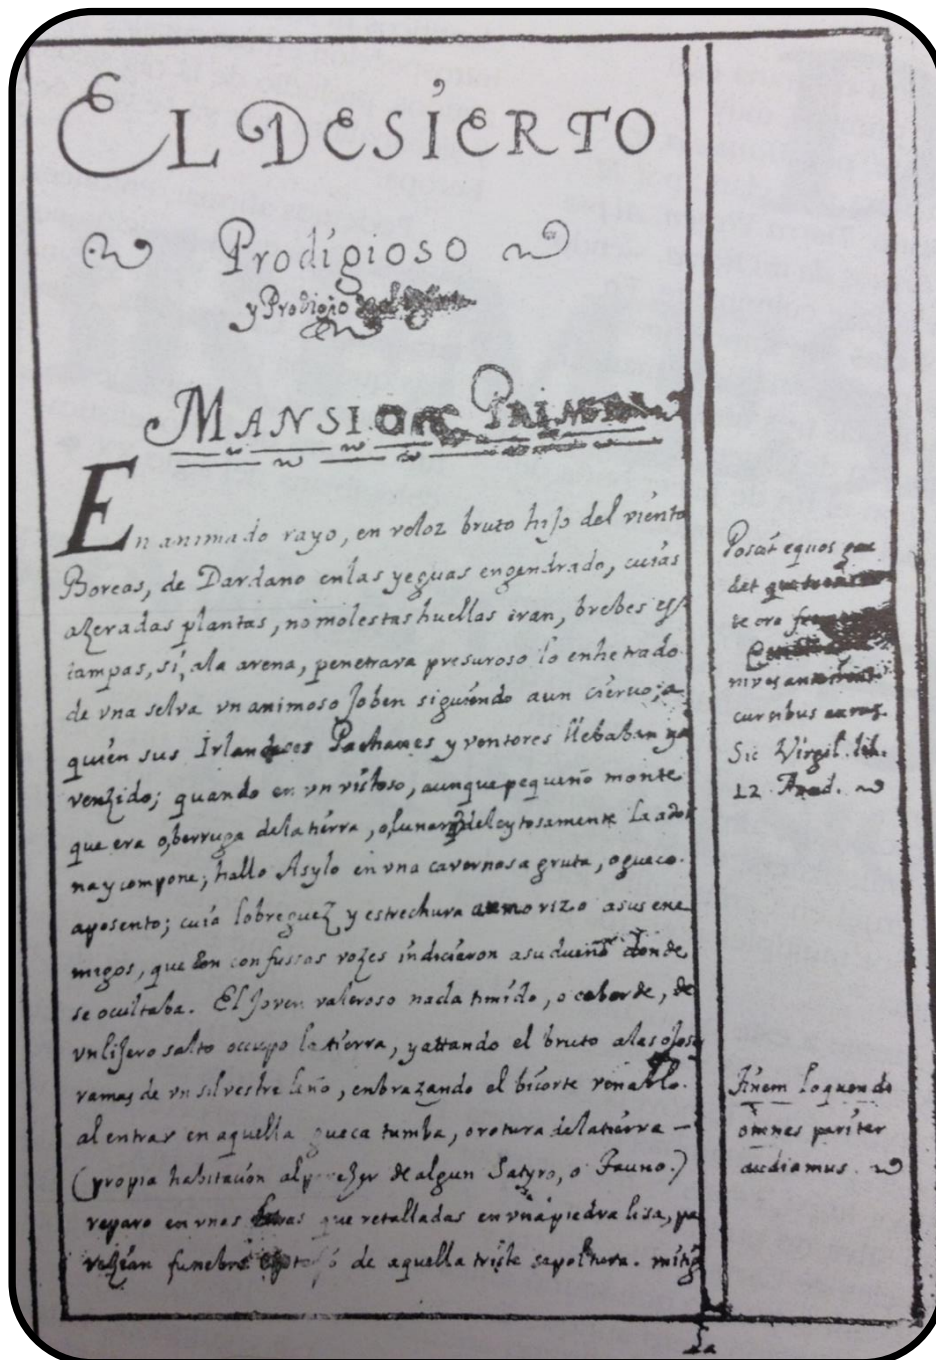 EL DESIERTO
Prodigioso
y Prodigio
MANSION PRIM
En animado rayo, en veloz bruto hijo del viento
Boreas, de Dardano enlas yeguas engendrado, cuias
azeradas plantas, no molestas huellas eran, brebes es
tampas, sí, ala arena, penetrava presuroso lo enhetrado
de vna selva vn animoso Joben siguiendo aun ciervo; a
quien sus Irlandeses Pachanes y ventores llebaban ya
venzido; quando en vn vistoso, aunque pequeño monte
que era o, berruga dela tierra, o, lunar q̃ deleytosamente la ador
na y compone; hallo Asylo en vna cavernosa gruta, o gueco
aposento; cuia lobreguez y estrechura atemorizo asus ene
migos, que con confussas vozes indicieron asu dueño donde
se ocultaba. El Joven valeroso nada timido, o coborde, de
vn lijero salto occupo la tierra, y attando el bruto alas ojosas
ramas de vn silvestre leño, enbrazando el bicorte venablo.
al entrar en aquella gueca tumba, o rotura dela tierra —
(propia habitacion al parezer de algun Satyro, o Fauno.)
reparo en vnas letras que retalladas en vna piedra lisa, pa
rezian funebre epitafio de aquella triste sepoltura. mitig
Poscit equos gau
det
te ora
nives
cursibus auras.
Sic Virgil. lib.
12 Aned.
Finem loquendi
omnes pariter
audiamus.